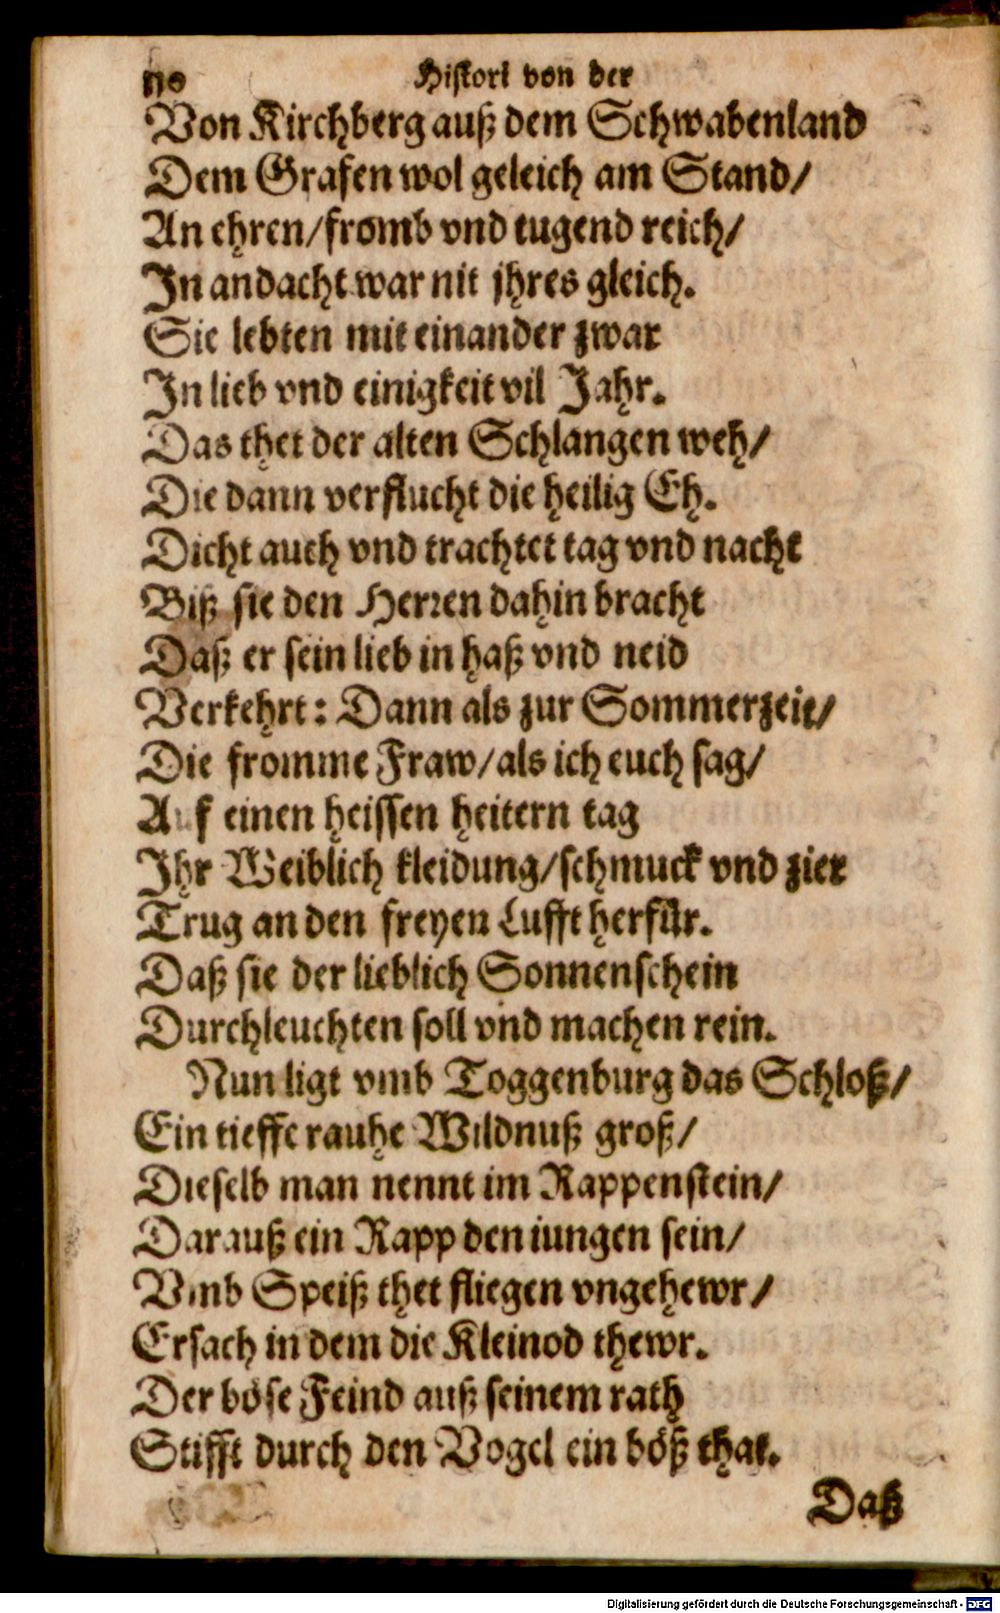 110 Histori von der
Von Kirchberg auß dem Schwabenland
Dem Grafen wol geleich am Stand/
An ehren/fromb vnd tugend reich/
In andacht war nit jhres gleich.
Sie lebten mit einander zwar
In lieb vnd einigkeit vil Jahr.
Das thet der alten Schlangen weh/
Die dann verflucht die heilig Eh.
Dicht auch vnd trachtet tag vnd nacht
Biß sie den Herren dahin bracht
Daß er sein lieb in haß vnd neid
Verkehrt: Dann als zur Sommerzeit/
Die fromme Fraw/als ich euch sag/
Auf einen heissen heitern tag
Ihr Weiblich kleidung/schmuck vnd zier
Trug an den freyen Lufft herfür.
Daß sie der lieblich Sonnenschein
Durchleuchten soll vnd machen rein.
Nun ligt vmb Toggenburg das Schloß/
Ein tieffe rauhe Wildnuß groß/
Dieselb man nennt im Rappenstein/
Darauß ein Rapp den iungen sein/
Vmb Speiß thet fliegen vngehewr/
Ersach in dem die Kleinod thewr.
Der böse Feind auß seinem rath
Stifft durch den Vogel ein böß that.
Daß
Digitalisierung gefördert durch die Deutsche Forschungsgemeinschaft - DFG